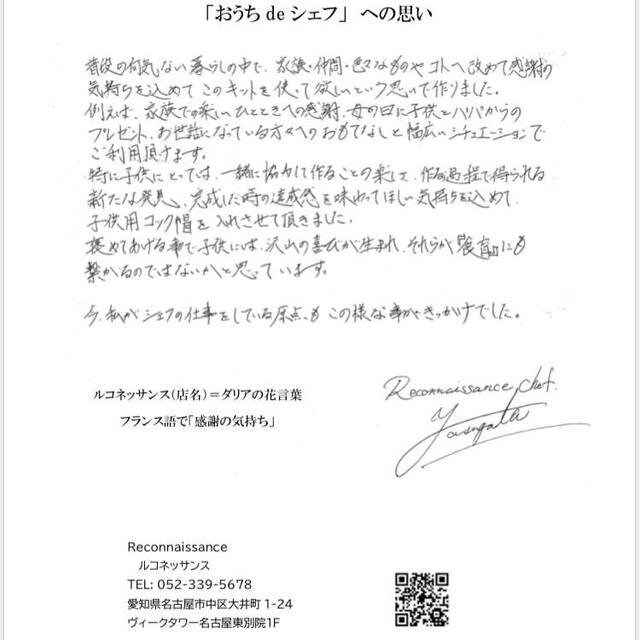 「おうち de シェフ」 への思い
普段の何気ない暮らしの中で、家族・仲間・色々なものやコトへ改めて感謝の
気持ちを込めて このキットを使って欲しいという思いで作りました。
例えば、家族での楽しいひとときへの感謝、母の日に子供とパパからの
プレゼント、お世話になっている方々へのおもてなしと幅広いシチュエーションで
ご利用頂けます。
特に子供にとっては、一緒に協力して作ることの楽しさ、作る過程で得られる
新たな発見、完成した時の達成感を味わってほしい気持ちを込めて、
子供用コック帽を入れさせて頂きました。
褒めてあげる事で子供には、沢山の喜びが生まれ、それらが『食育』にも
繋がるのではないかと思っています。
今、私がシェフの仕事をしている原点も この様な事がきっかけでした。
ルコネッサンス(店名)=ダリアの花言葉
フランス語で「感謝の気持ち」
Reconnaissance chef.
Yasugata
Reconnaissance
ルコネッサンス
TEL: 052-339-5678
愛知県名古屋市中区大井町 1-24
ヴィークタワー名古屋東別院1F